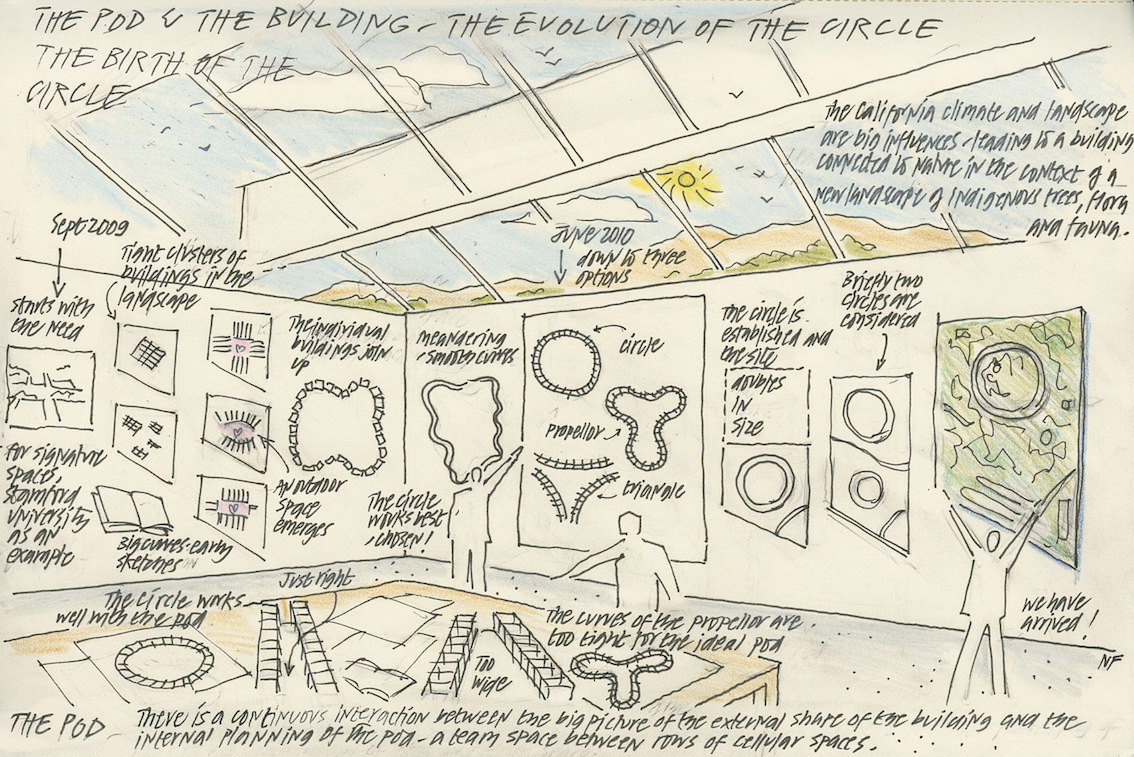 THE POD & THE BUILDING - THE EVOLUTION OF THE CIRCLE
THE BIRTH OF THE
CIRCLE
The California climate and landscape
are big influences - leading to a building
connected to nature in the context of a
new landscape of indigenous trees, flora
and fauna.
Sept 2009
starts with
the need
for signature
spaces,
Stamford
University
as an
example
Tight clusters of
buildings in the
landscape
Big curves-early
sketches
An outdoor
space
emerges
The individual
buildings join
up
meandering
- smooth curves
The circle
works best
, chosen!
June 2010
down to three
options
circle
propellor
triangle
The circle is
established and
the site
doubles
in
size
Briefly two
circles are
considered
we have
arrived!
NF
The circle works
well with the pod
Just right
Too
wide
The curves of the propellor are
too tight for the ideal pod
THE POD - There is a continuous interaction between the big picture of the external share of the building and the
internal planning of the pod - a team space between rows of cellular spaces.